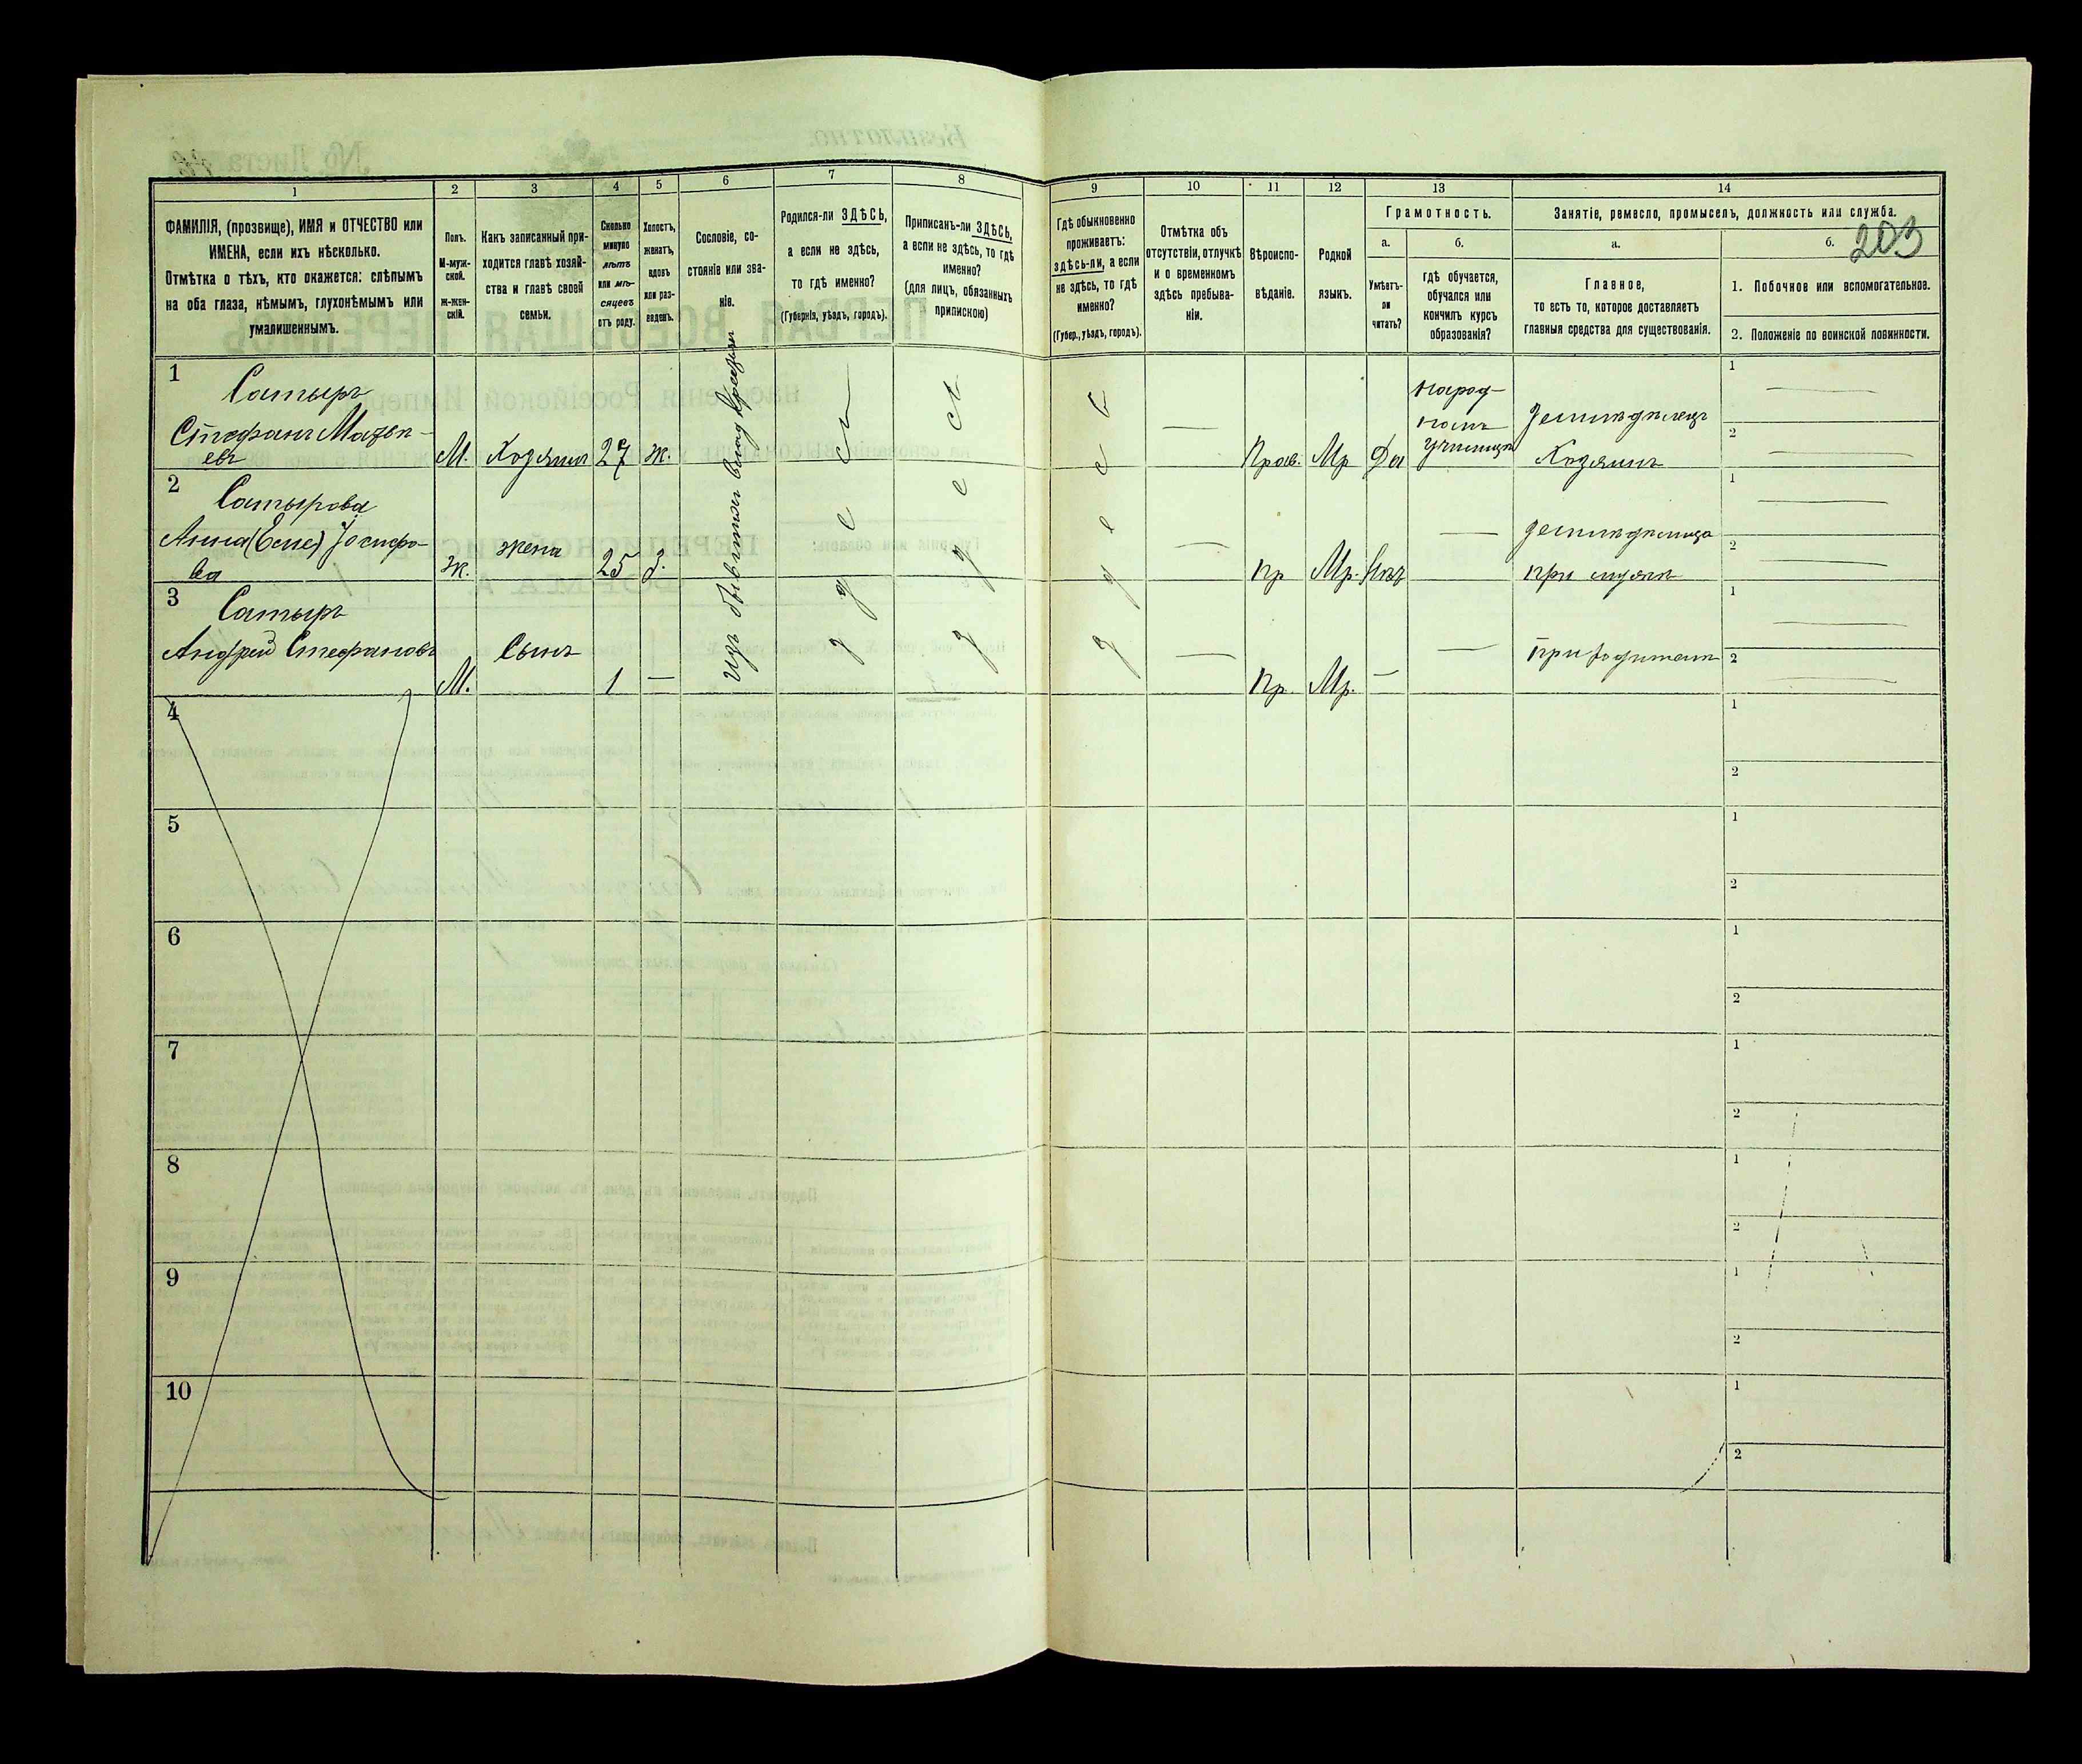 203
1 2 3 4 5 6 7 8 9 10 11 12 13 14
ФАМИЛІЯ, (прозвище), ИМЯ и ОТЧЕСТВО или
ИМЕНА, если ихъ нѣсколько.
Отмѣтка о тѣхъ, кто окажется: слѣпымъ
на оба глаза, нѣмымъ, глухонѣмымъ или
умалишеннымъ.
Полъ.
М-муж-
ской.
Ж-жен-
скій.
Какъ записанный при-
ходится главѣ хозяй-
ства и главѣ своей
семьи.
Сколько
минуло
лѣтъ
или мѣ-
сяцевъ
отъ роду.
Холостъ,
женатъ,
вдовъ
или раз-
веденъ.
Сословіе, со-
стояніе или зва-
ніе.
Родился-ли ЗДѢСЬ,
а если не здѣсь,
то гдѣ именно?
(Губернія, уѣздъ, городъ).
Приписанъ-ли ЗДѢСЬ,
а если не здѣсь, то гдѣ
именно?
(для лицъ, обязанныхъ
припискою)
Гдѣ обыкновенно
проживаетъ:
здѣсь-ли, а если
не здѣсь, то гдѣ
именно?
(Губер., уѣздъ, городъ).
Отмѣтка объ
отсутствіи, отлучкѣ
и о временномъ
здѣсь пребыва-
ніи.
Вѣроиспо-
вѣданіе.
Родной
языкъ.
Грамотность.
а.
Умѣетъ-
ли
читать?
б.
гдѣ обучается,
обучался или
кончилъ курсъ
образованія?
Занятіе, ремесло, промыселъ, должность или служба.
а.
Главное,
то есть то, которое доставляетъ
главныя средства для существованія.
б.
1. Побочное или вспомогательное.
2. Положеніе по воинской повинности.
1
Сатыръ
Стефанъ Матвѣ-
евъ
М. Хозяинъ 27 ж.
Прав. Мр Да
народ-
номъ
училищѣ
земледѣлецъ
Хозяинъ
1
2
2
Сатырова
Анна
ва
ж. жена 25 з.
Пр Мр. Нѣтъ
земледѣлица
при мужѣ
1
2
3
Сатыръ
Андрей Стефановъ
М. Сынъ 1 —
Пр. Мр. —
при родителѣ
1
2
изъ бывшихъ
4
1
2
5
1
2
6
1
2
7
1
2
8
1
2
9
1
2
10
1
2